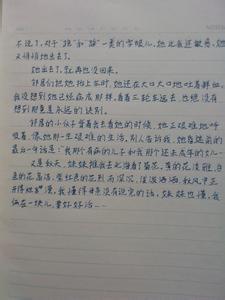 不说了。对于“跑”和“踩”一类的字眼儿，她比我还敏感。她
又悄悄地出去了。
她出去了，就再也没回来。
邻居们把她抬上车时，她还在大口大口地吐着鲜血。
我没想到她已经病成那样。看着三轮车远去，也绝没有
想到那竟是永远的诀别。
邻居的小伙子背着我去看她的时候，她正艰难地呼
吸着，像她那一生艰难的生活。别人告诉我，她昏迷前的
最后一句话是：“我那个有病的儿子和我那个还未成年的女儿……
又是秋天，妹妹推我去北海看了菊花。黄的花淡雅，白
色的花高洁，紫红色的花热而深沉，泼泼洒洒，秋风中正
开得烂漫。我懂得母亲没有说完的话，妹妹也懂。我
俩在一块儿，要好好活……